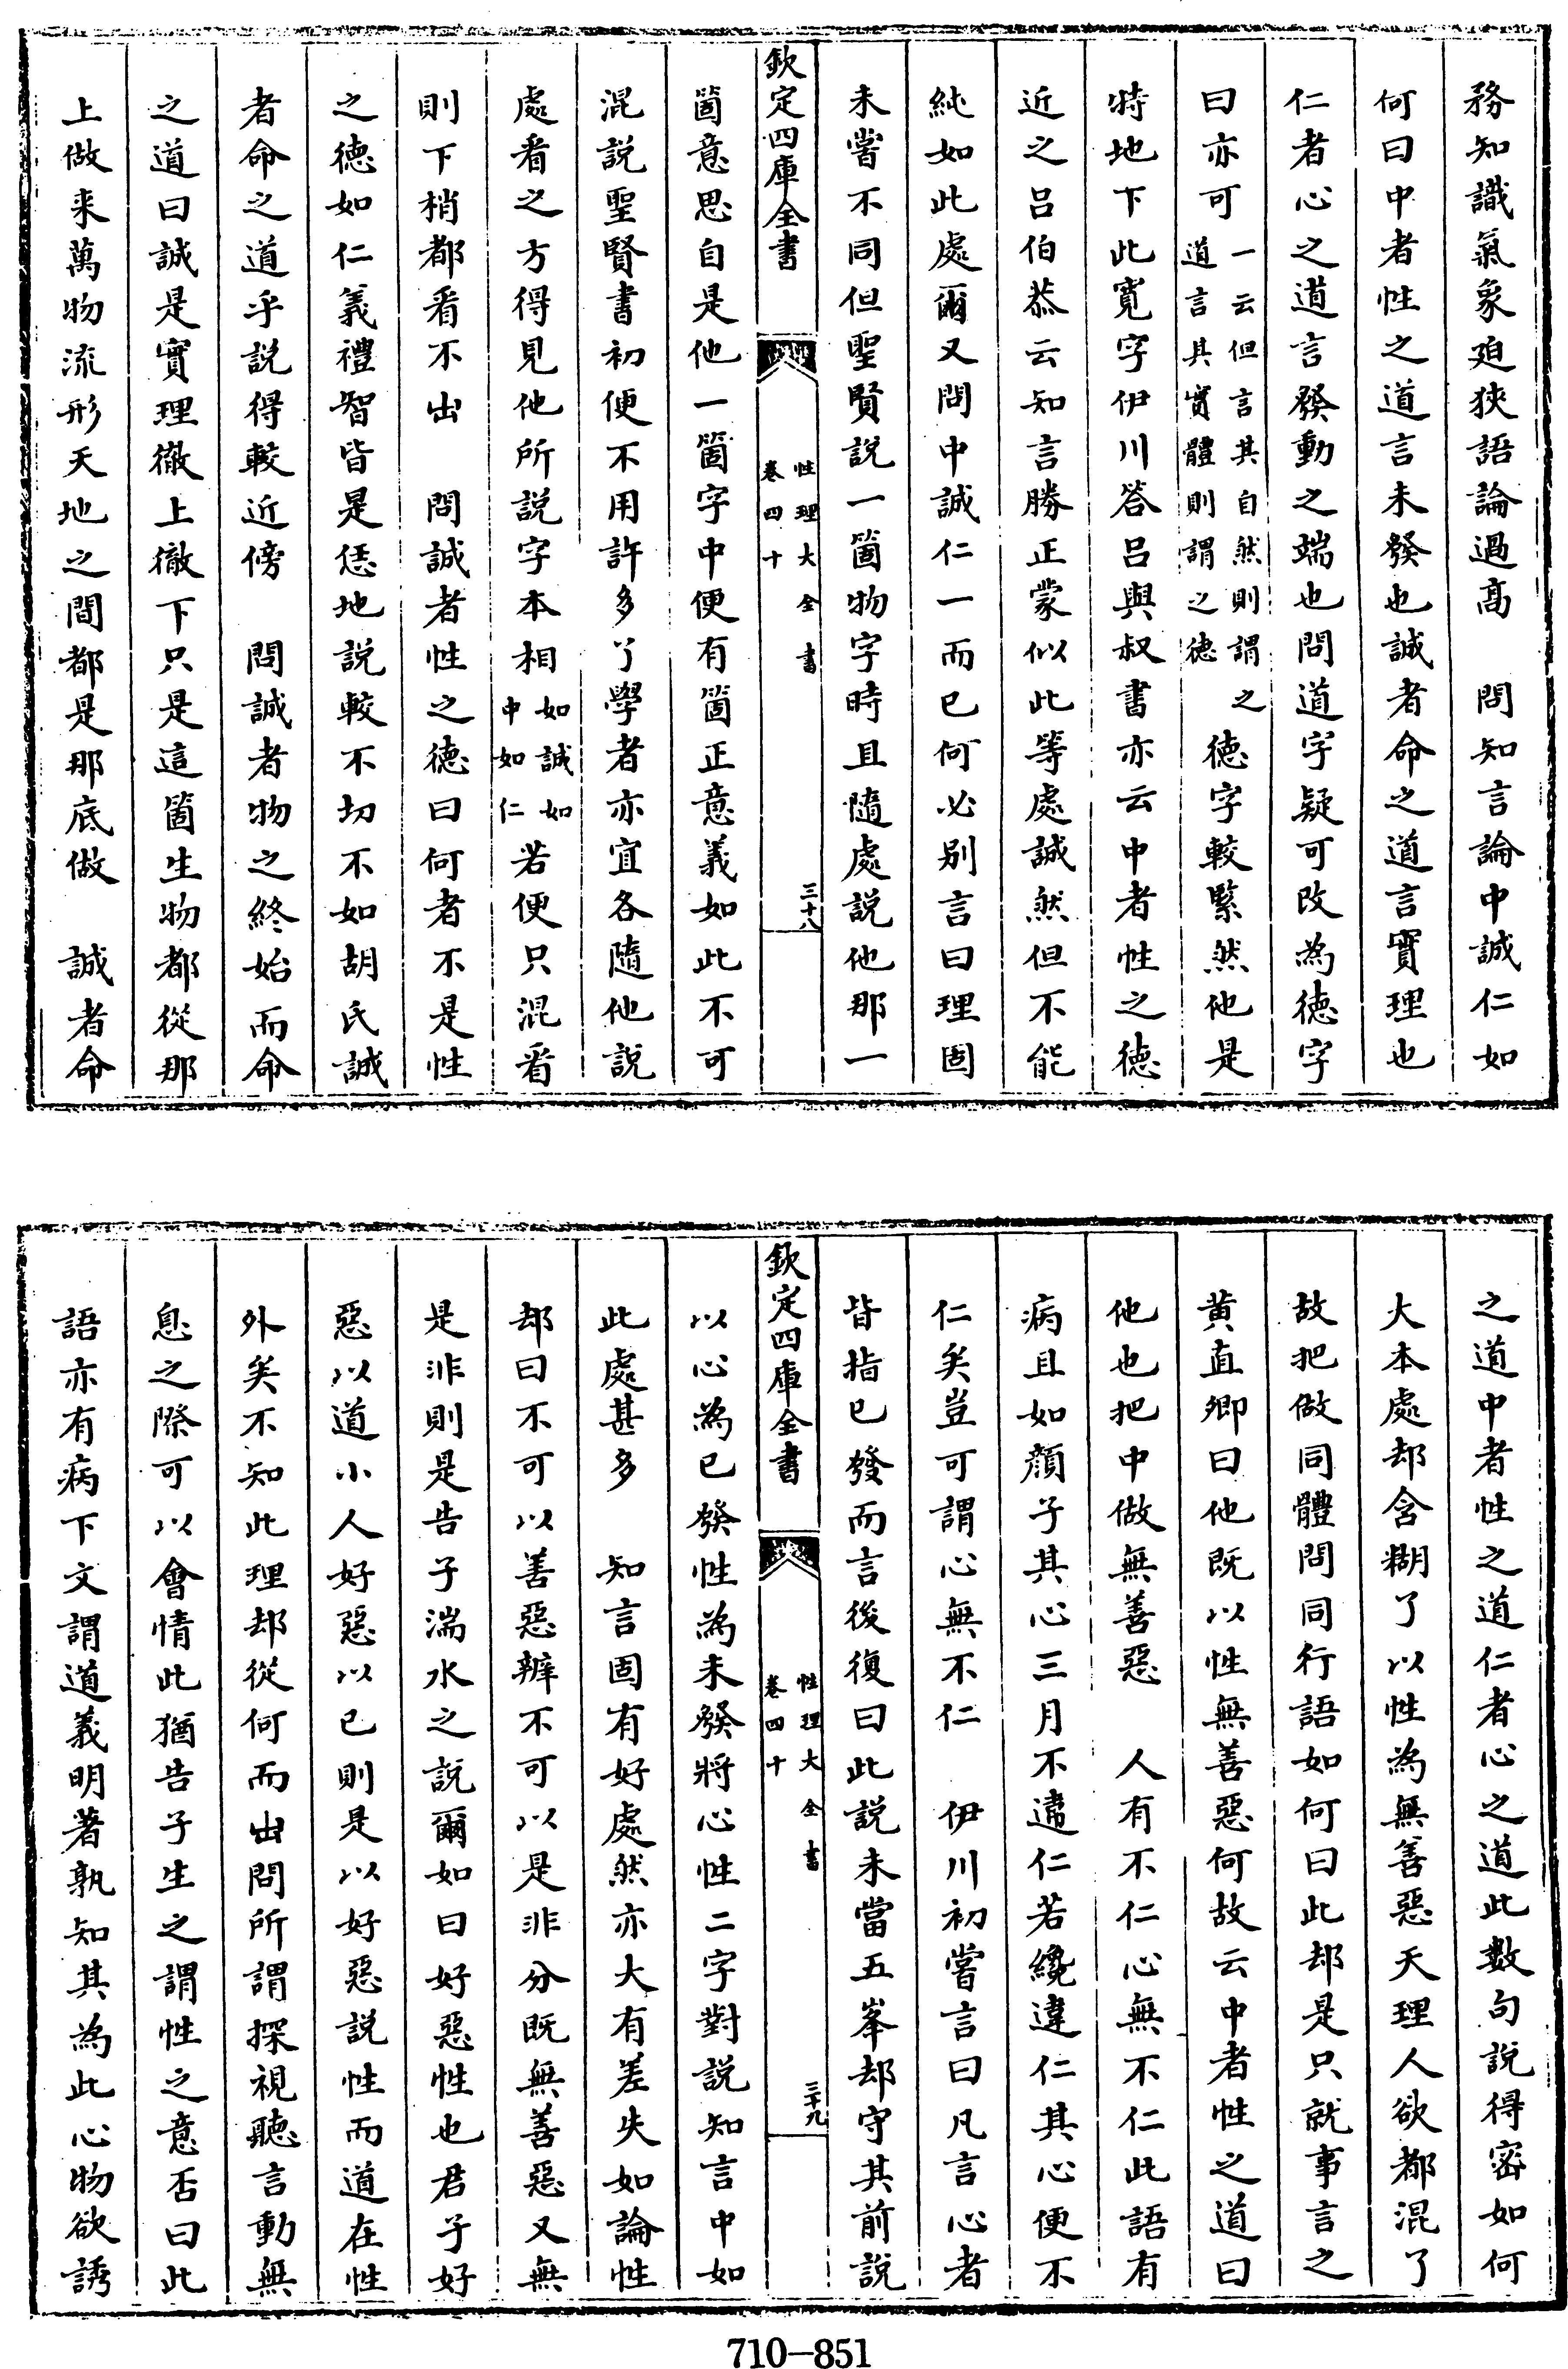 務知識氣象迫狹語論過高　問知言論中誠仁如
何曰中者性之道言未發也誠者命之道言實理也
仁者心之道言發動之端也問道字疑可改為德字
曰亦可一云但言其自然則謂之道言其實體則謂之德德字較緊然他是
特地下此寛字伊川答吕與叔書亦云中者性之德
近之吕伯恭云知言勝正蒙似此等處誠然但不能
純如此處爾又問中誠仁一而已何必别言曰理固
未嘗不同但聖賢説一箇物字時且隨處説他那一
欽定四庫全書
性理大全書
卷四十
三十八
箇意思自是他一箇字中便有箇正意義如此不可
混説聖賢書初便不用許多了學者亦宜各隨他説
處看之方得見他所説字本相如誠如中如仁若便只混看
則下梢都看不出　問誠者性之德曰何者不是性
之德如仁義禮智皆是恁地説較不切不如胡氏誠
者命之道乎説得較近傍　問誠者物之終始而命
之道曰誠是實理徹上徹下只是這箇生物都從那
上做来萬物流形天地之間都是那底做　誠者命
之道中者性之道仁者心之道此數句說得密如何
大本處却含糊了以性為無善惡天理人欲都混了
故把做同體問同行語如何曰此却是只就事言之
黄直卿曰他既以性無善惡何故云中者性之道曰
他也把中做無善惡　人有不仁心無不仁此語有
病且如顔子其心三月不違仁若纔違仁其心便不
仁矣豈可謂心無不仁　伊川初嘗言曰凡言心者
皆指已發而言後復曰此説未當五峯却守其前說
欽定四庫全書
性理大全書
卷四十
三十九
以心為已發性為未發將心性二字對説知言中如
此處甚多　知言固有好處然亦大有差失如論性
却曰不可以善惡辨不可以是非分既無善惡又無
是非則是告子湍水之説爾如曰好惡性也君子好
惡以道小人好惡以已則是以好惡説性而道在性
外矣不知此理却從何而出問所謂探視聽言動無
息之際可以會情此猶告子生之謂性之意否曰此
語亦有病下文謂道義明著孰知其為此心物欲誘
710-851